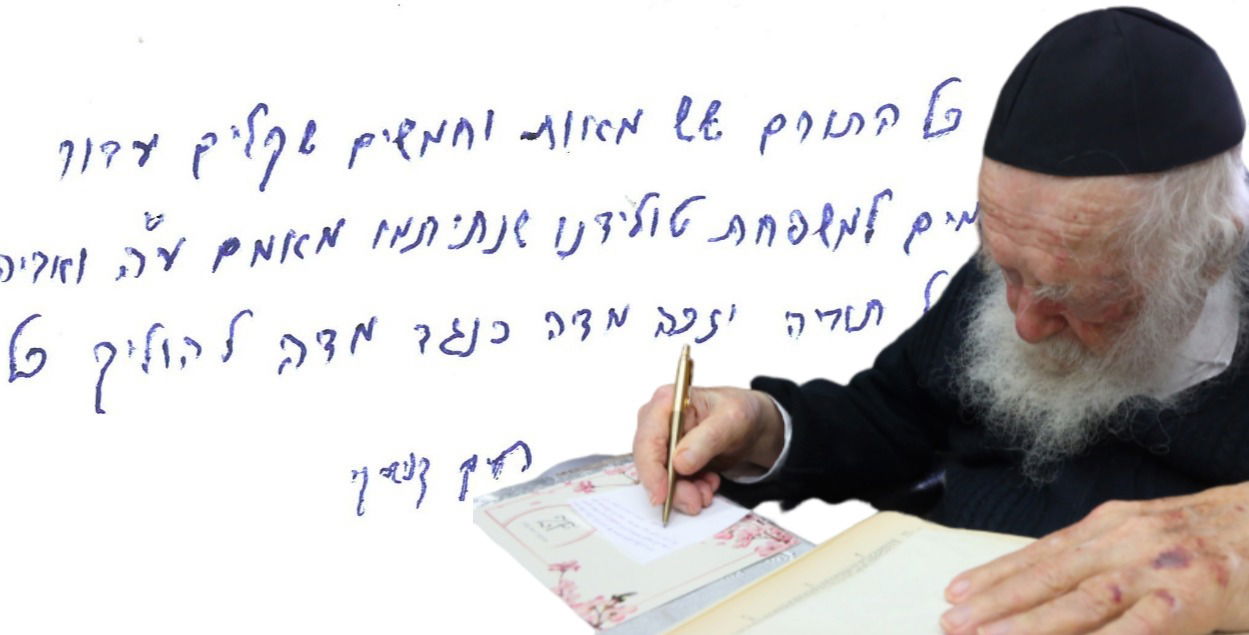 כל התורם שש מאות וחמשים שקלים עבור
למשפחת טולידנו שנתיתמו מאמם ע"ה ואביה
תורה יזכה מדה כנגד מדה להוליך כל
חיים קניבסקי